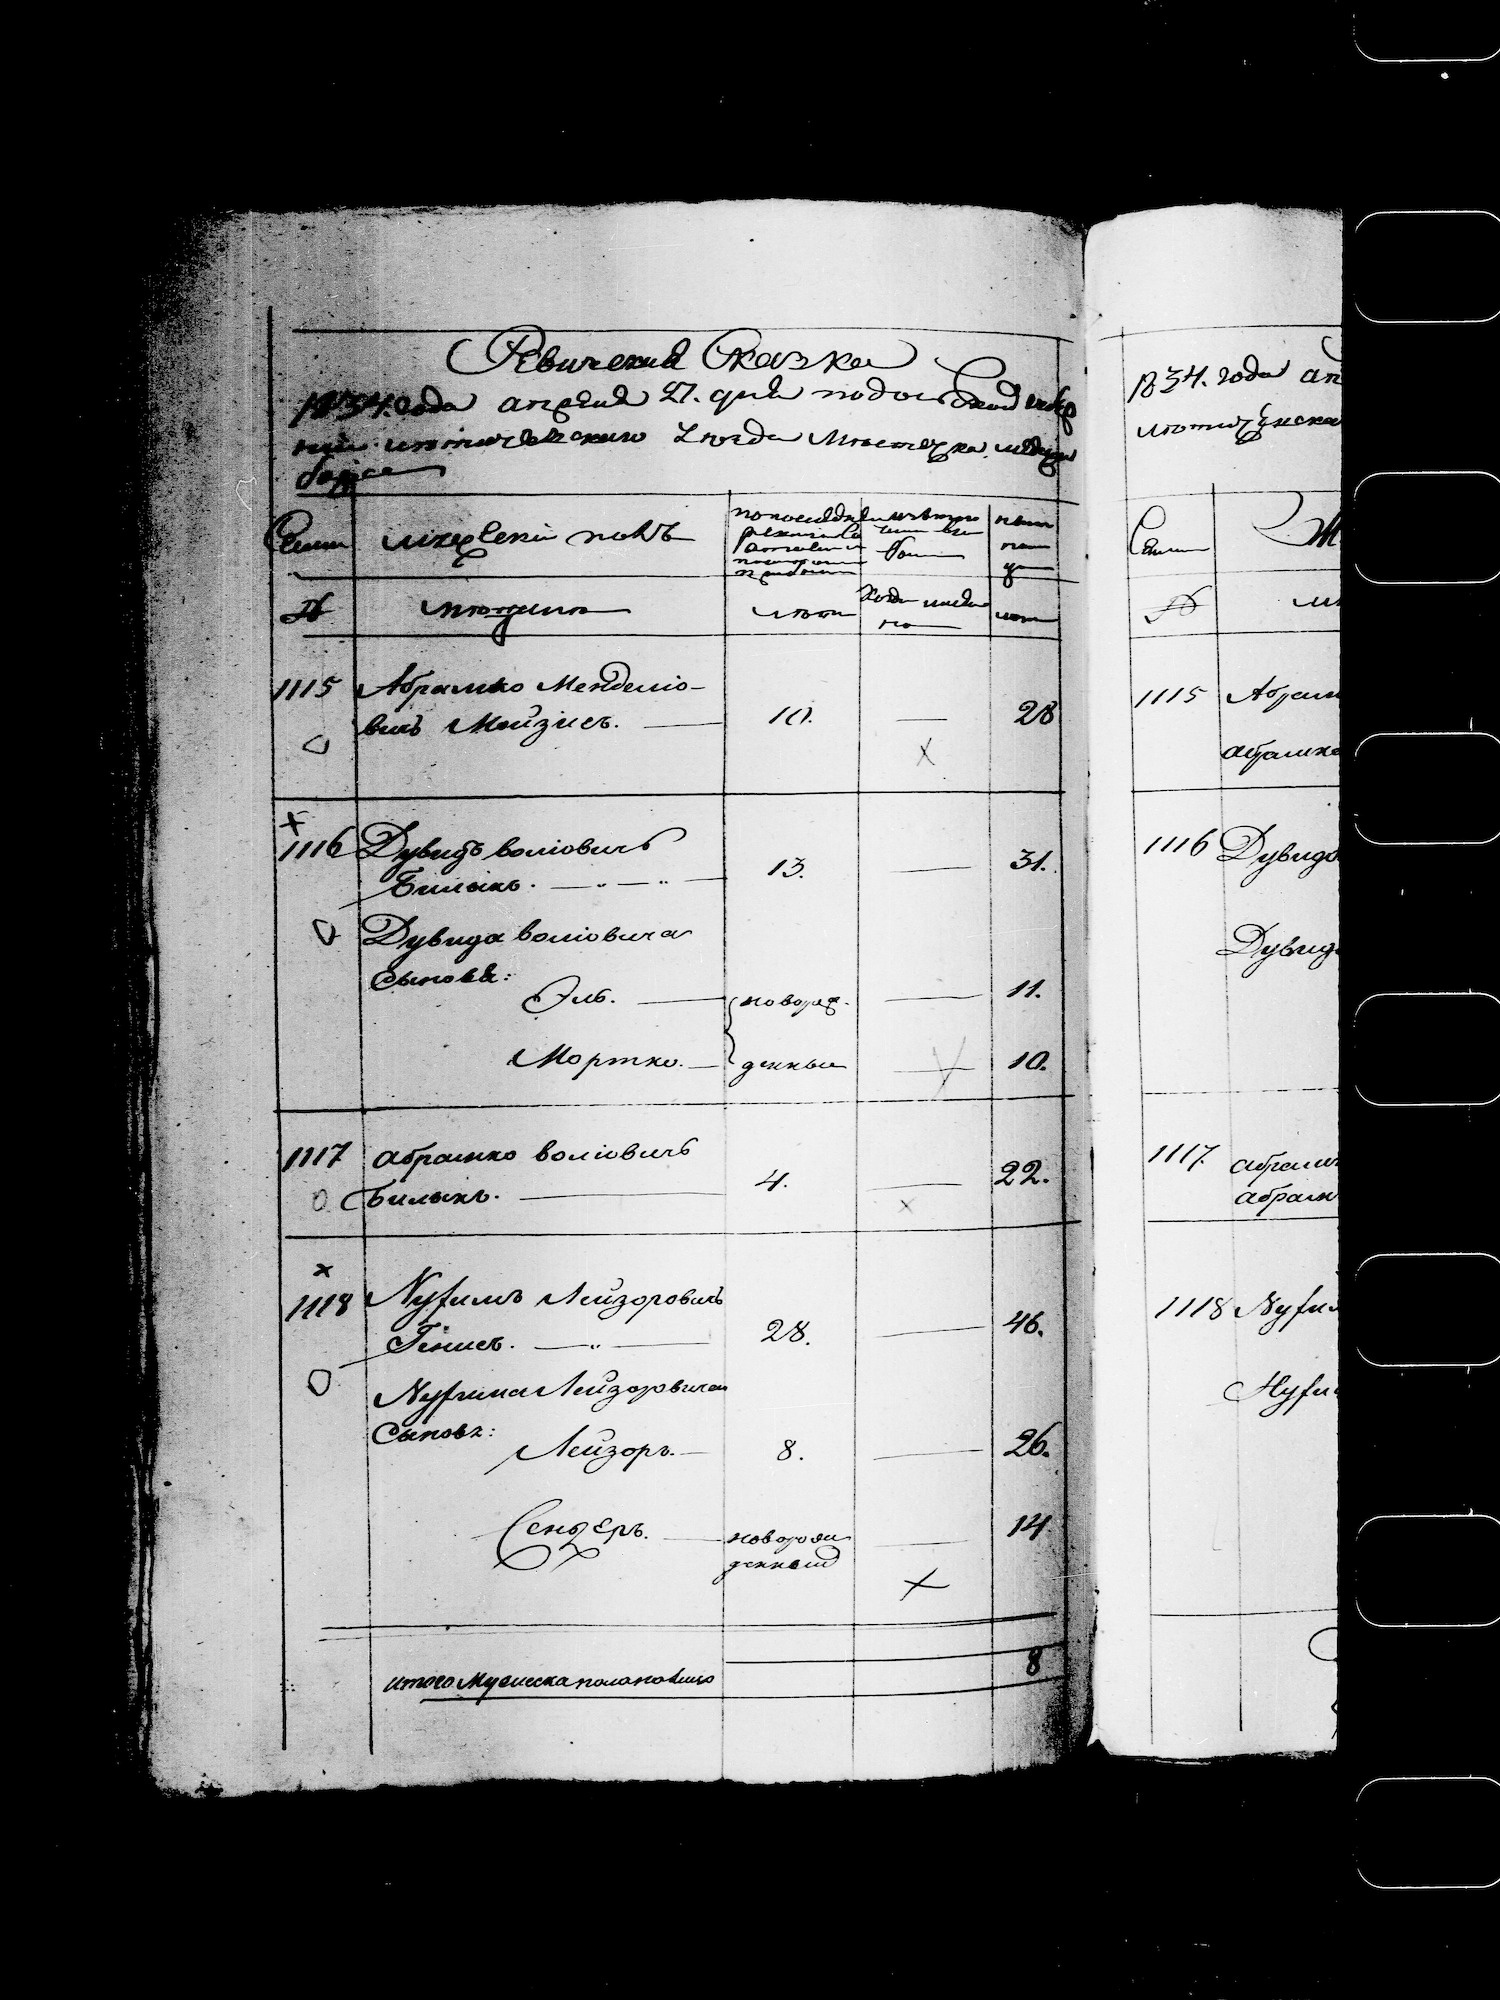 Ревизская Сказка
1834. года апреля 27. дня подольской губер
нии летичевского уезда Местечка меджи
божа
Семьи мужеский полъ по последней ревизии состояло и после того прибыло изъ того числа выбыло ныне на лицо
№ мещане лета Когда именно лета
1115 Абрамко Менделіо-
вичъ Мейзисъ. 10. 28
1116 Дувидъ воліовичъ
Билыкъ. 13. 31.
Дувида воліовича
Сыновья:
Эль. новорож- 11.
Мортко. денные 10.
1117 абрамко воліовичъ
Билыкъ. 4. 22.
1118 Нухимъ Лейзоровичъ
Генисъ. 28. 46.
Нухима Лейзоровича
Сыновья:
Лейзоръ. 8. 26.
Сендеръ. новорож 14
денный
итого Мужеска пола на лицо 8
1834. года ап
летичевска
Семьи
№
1115 Абрам
абрамка
1116 Дувида
Дувида
1117. абрам
абрамк
1118 Нухи
Нухи